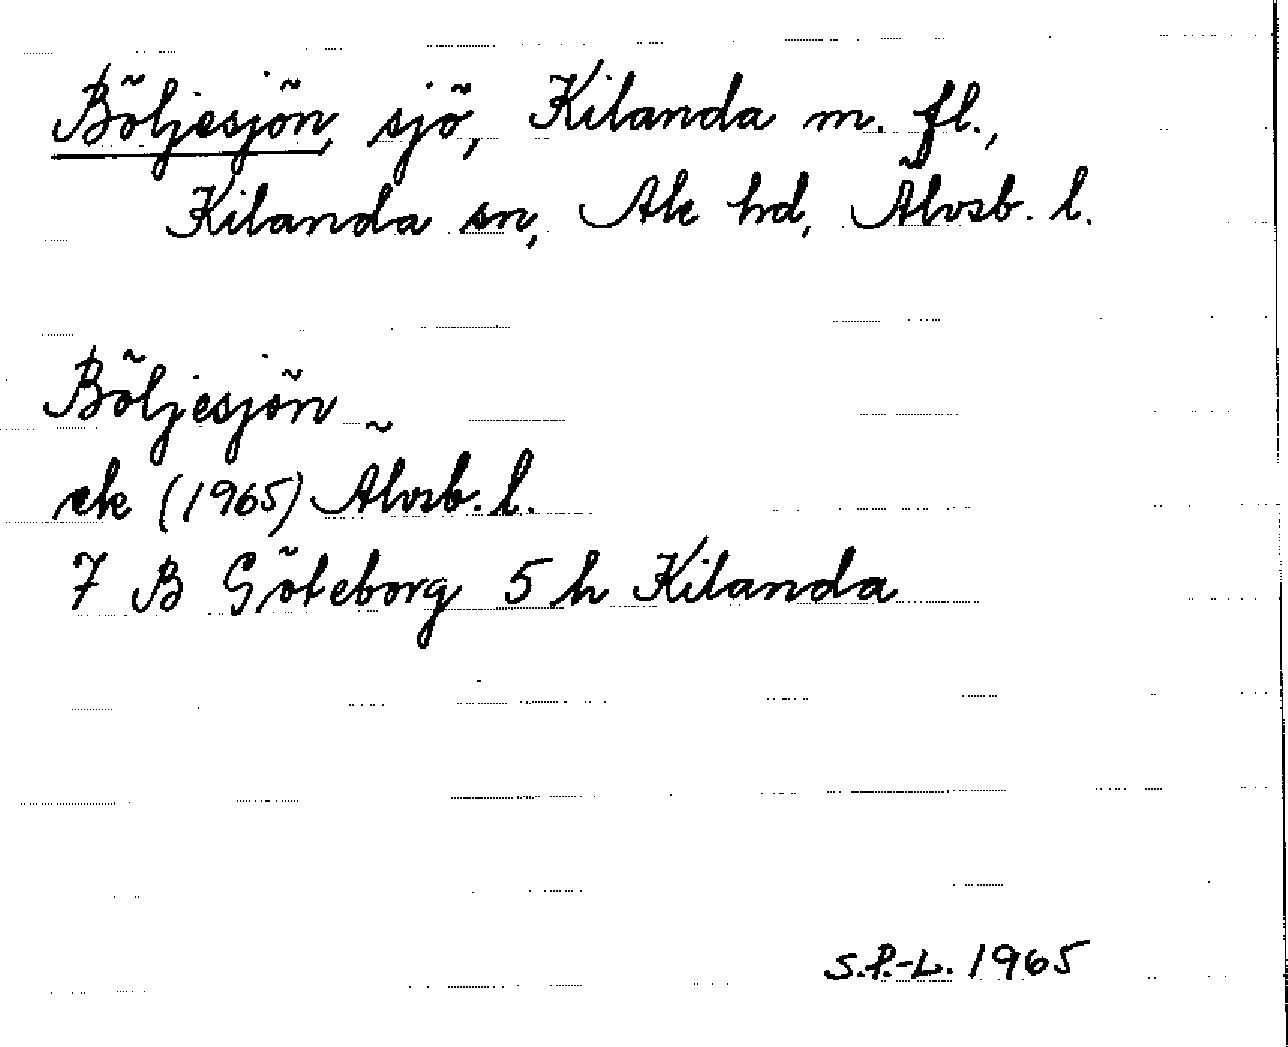 Böljesjön, sjö, Kilanda m. fl.,
Kilanda sn, Ale hd, Älvsb. l.
Böljesjön
ek (1965) Älvsb. l.
7 B Göteborg 5 h Kilanda
S.P.-L. 1965